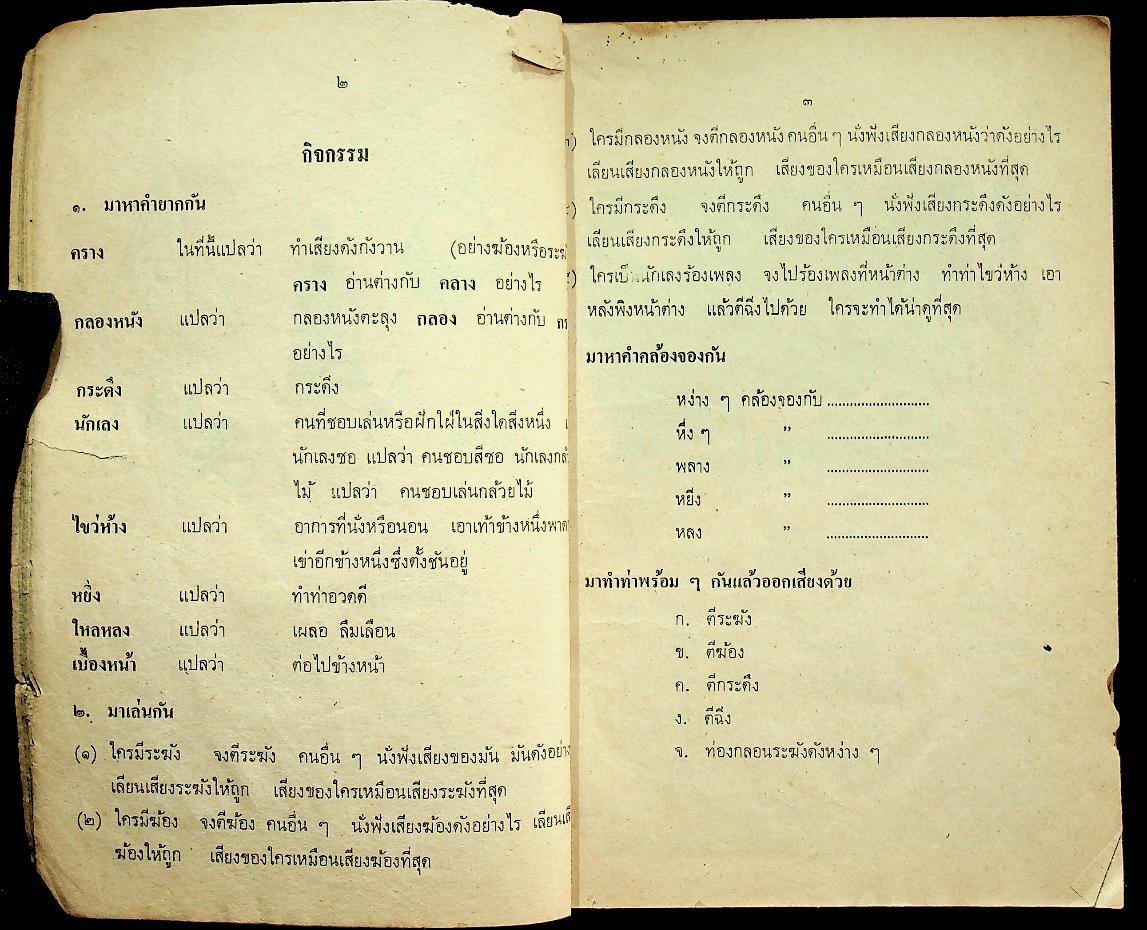 ๒
กิจกรรม
๑. มาหาคำยากกัน
คราง ในที่นี้แปลว่า ทำเสียงดังกังวาน (อย่างฆ้องหรือระฆัง
คราง อ่านต่างกับ คลาง อย่างไร
กลองหนัง แปลว่า กลองหนังตะลุง กลอง อ่านต่างกับ
อย่างไร
กระดึง แปลว่า กระดิ่ง
นักเลง แปลว่า คนที่ชอบเล่นหรือฝักใฝ่ในสิ่งใดสิ่งหนึ่ง
นักเลงซอ แปลว่า คนชอบสีซอ นักเลงกล้วย
ไม้ แปลว่า คนชอบเล่นกล้วยไม้
ไขว่ห้าง แปลว่า อาการที่นั่งหรือนอน เอาเท้าข้างหนึ่งพาด
เข่าอีกข้างหนึ่งซึ่งตั้งชันอยู่
หยิ่ง แปลว่า ทำท่าอวดดี
ใหลหลง แปลว่า เผลอ ลืมเลือน
เบื้องหน้า แปลว่า ต่อไปข้างหน้า
๒. มาเล่นกัน
(๑) ใครมีระฆัง จงตีระฆัง คนอื่น ๆ นั่งฟังเสียงของมัน มันดังอย่าง
เลียนเสียงระฆังให้ถูก เสียงของใครเหมือนเสียงระฆังที่สุด
(๒) ใครมีฆ้อง จงตีฆ้อง คนอื่น ๆ นั่งฟังเสียงฆ้องดังอย่างไร เลียน
ฆ้องให้ถูก เสียงของใครเหมือนเสียงฆ้องที่สุด
๓
ใครมีกลองหนัง จงตีกลองหนัง คนอื่น ๆ นั่งฟังเสียงกลองหนังว่าดังอย่างไร
เลียนเสียงกลองหนังให้ถูก เสียงของใครเหมือนเสียงกลองหนังที่สุด
ใครมีกระดึง จงตีกระดึง คนอื่น ๆ นั่งฟังเสียงกระดึงดังอย่างไร
เลียนเสียงกระดึงให้ถูก เสียงของใครเหมือนเสียงกระดึงที่สุด
ใครเป็นนักเลงร้องเพลง จงไปร้องเพลงที่หน้าต่าง ทำท่าไขว่ห้าง เอา
หลังพิงหน้าต่าง แล้วตีฉิ่งไปด้วย ใครจะทำได้น่าดูที่สุด
มาหาคำคล้องจองกัน
หง่าง ๆ คล้องจองกับ ..........................
หึ่ง ๆ ” ..........................
พลาง ” ..........................
หยิ่ง ” ..........................
หลง ” ..........................
มาทำท่าพร้อม ๆ กันแล้วออกเสียงด้วย
ก. ตีระฆัง
ข. ตีฆ้อง
ค. ตีกระดึง
ง. ตีฉิ่ง
จ. ท่องกลอนระฆังดังหง่าง ๆ